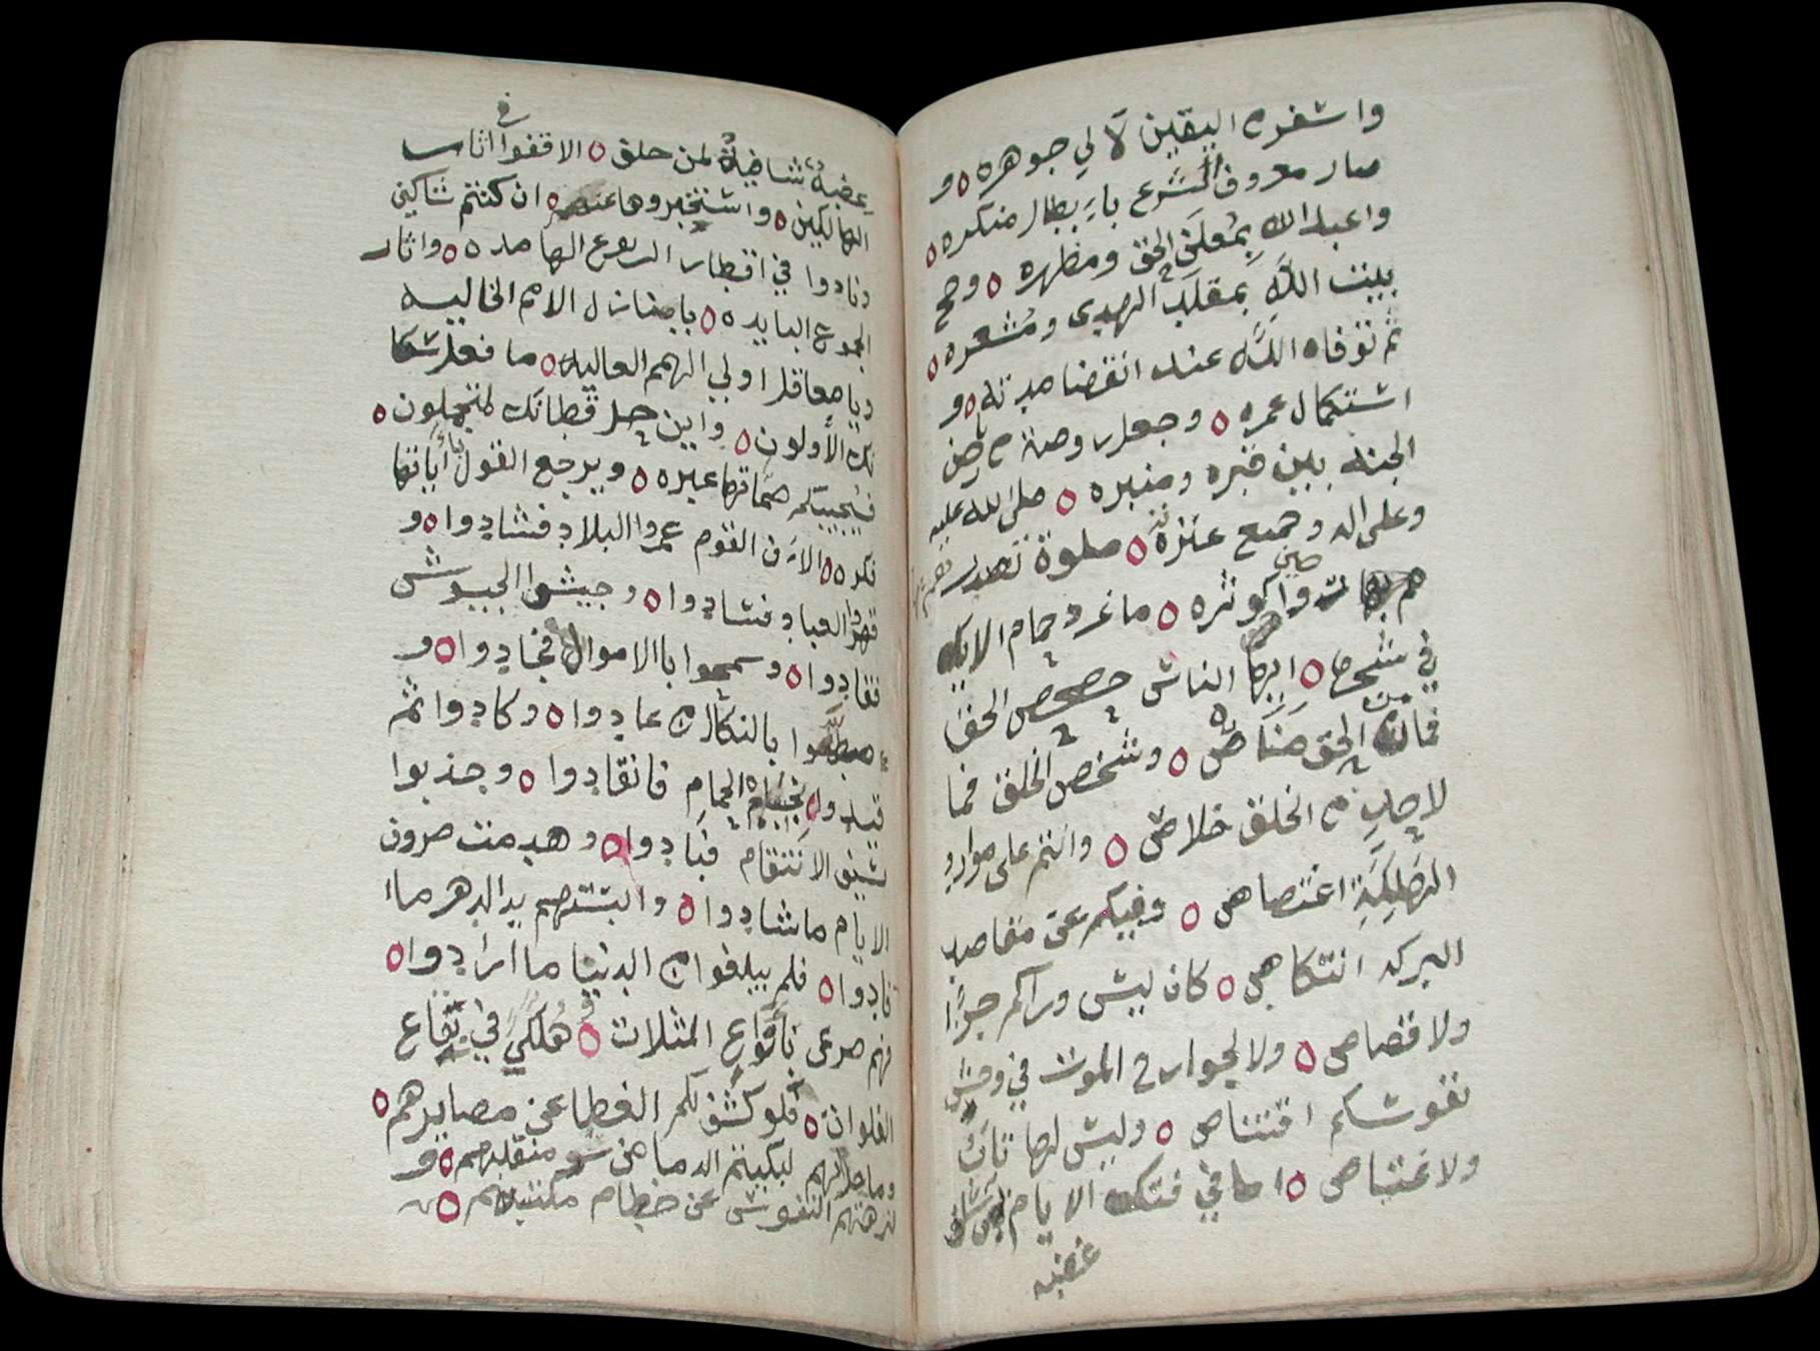 واسفره اليقين لآلي جوهره ه و
صار معروف الشرع بابطال منكره ه
واعباد الله بمعلن الحق ومظهره ه وحج
بيت الله بمقلب الهدى ومشعره ه
ثم توفاه الله عند انقضا مدته ه و
استكمال عمره ه وجعل روضة من رياض
الجنه بين قبره ومنبره ه صلى الله عليه
وعلى اله وجميع عترته ه صلوة تصدر
هم وا كوثره ه ما غرد حمام الايك
في شجره ه ايها الناس حصحص الحق
فما من الحق مناص ه وشخص الخلق فما
لاحد من الخلق خلاص ه وانتم على موارد
الهلكة اغتصاص ه وفيكم عن مقاصد
البركه انتكاص ه كان ليس وراكم جزاءا
ولا قصاص ه ولا لجوارح الموت في وحش
نفوسكم اقتناص ه وليس لها
ولا عتياص ه اما في فتكه الايام
غضبه
غضبة شافية لمن خلق ه الا قفوا في اثار
الهالكين ه واستخبروها عنهم ه ان كنتم شاكين
ونادوا في اقطار الربوع الهامده ه واثار
الجموع البايده ه يا منازل الامم الخاليه
ويا معاقل اولي الهمم العاليه ه ما فعل سكا
نك الأولون ه واين حل قطانك المتحملون ه
فتجيبكم صماتها عبره ه ويرجع القول بأياتها
فكره ه الان القوم عمروا البلاد فشادوا ه و
قهروا العباد فسادوا ه وجيشوا الجيوش
فقادوا ه وسمحوا باالاموال فجادوا ه و
بالنكال من عادوا ه وكادوا ثم
الحمام فانقادوا ه وجذبوا
بسيف الانتقام فبادوا ه وهدمت صروف
الايام ما شادوا ه والبستهم يد الدهر ماا
قادوا ه فلم يبلغوا من الدنيا ما ارادوا ه
فهم صرعى بأنواع المثلات ه هلكى في بقاع
الفلوات ه فلو كشف لكم الغطا عن مصايرهم ه
وما حل بهم لبكيتم الدما من سو منقلبهم ه و
لنزهتم النفوس عن حطام مكتسبهم ه